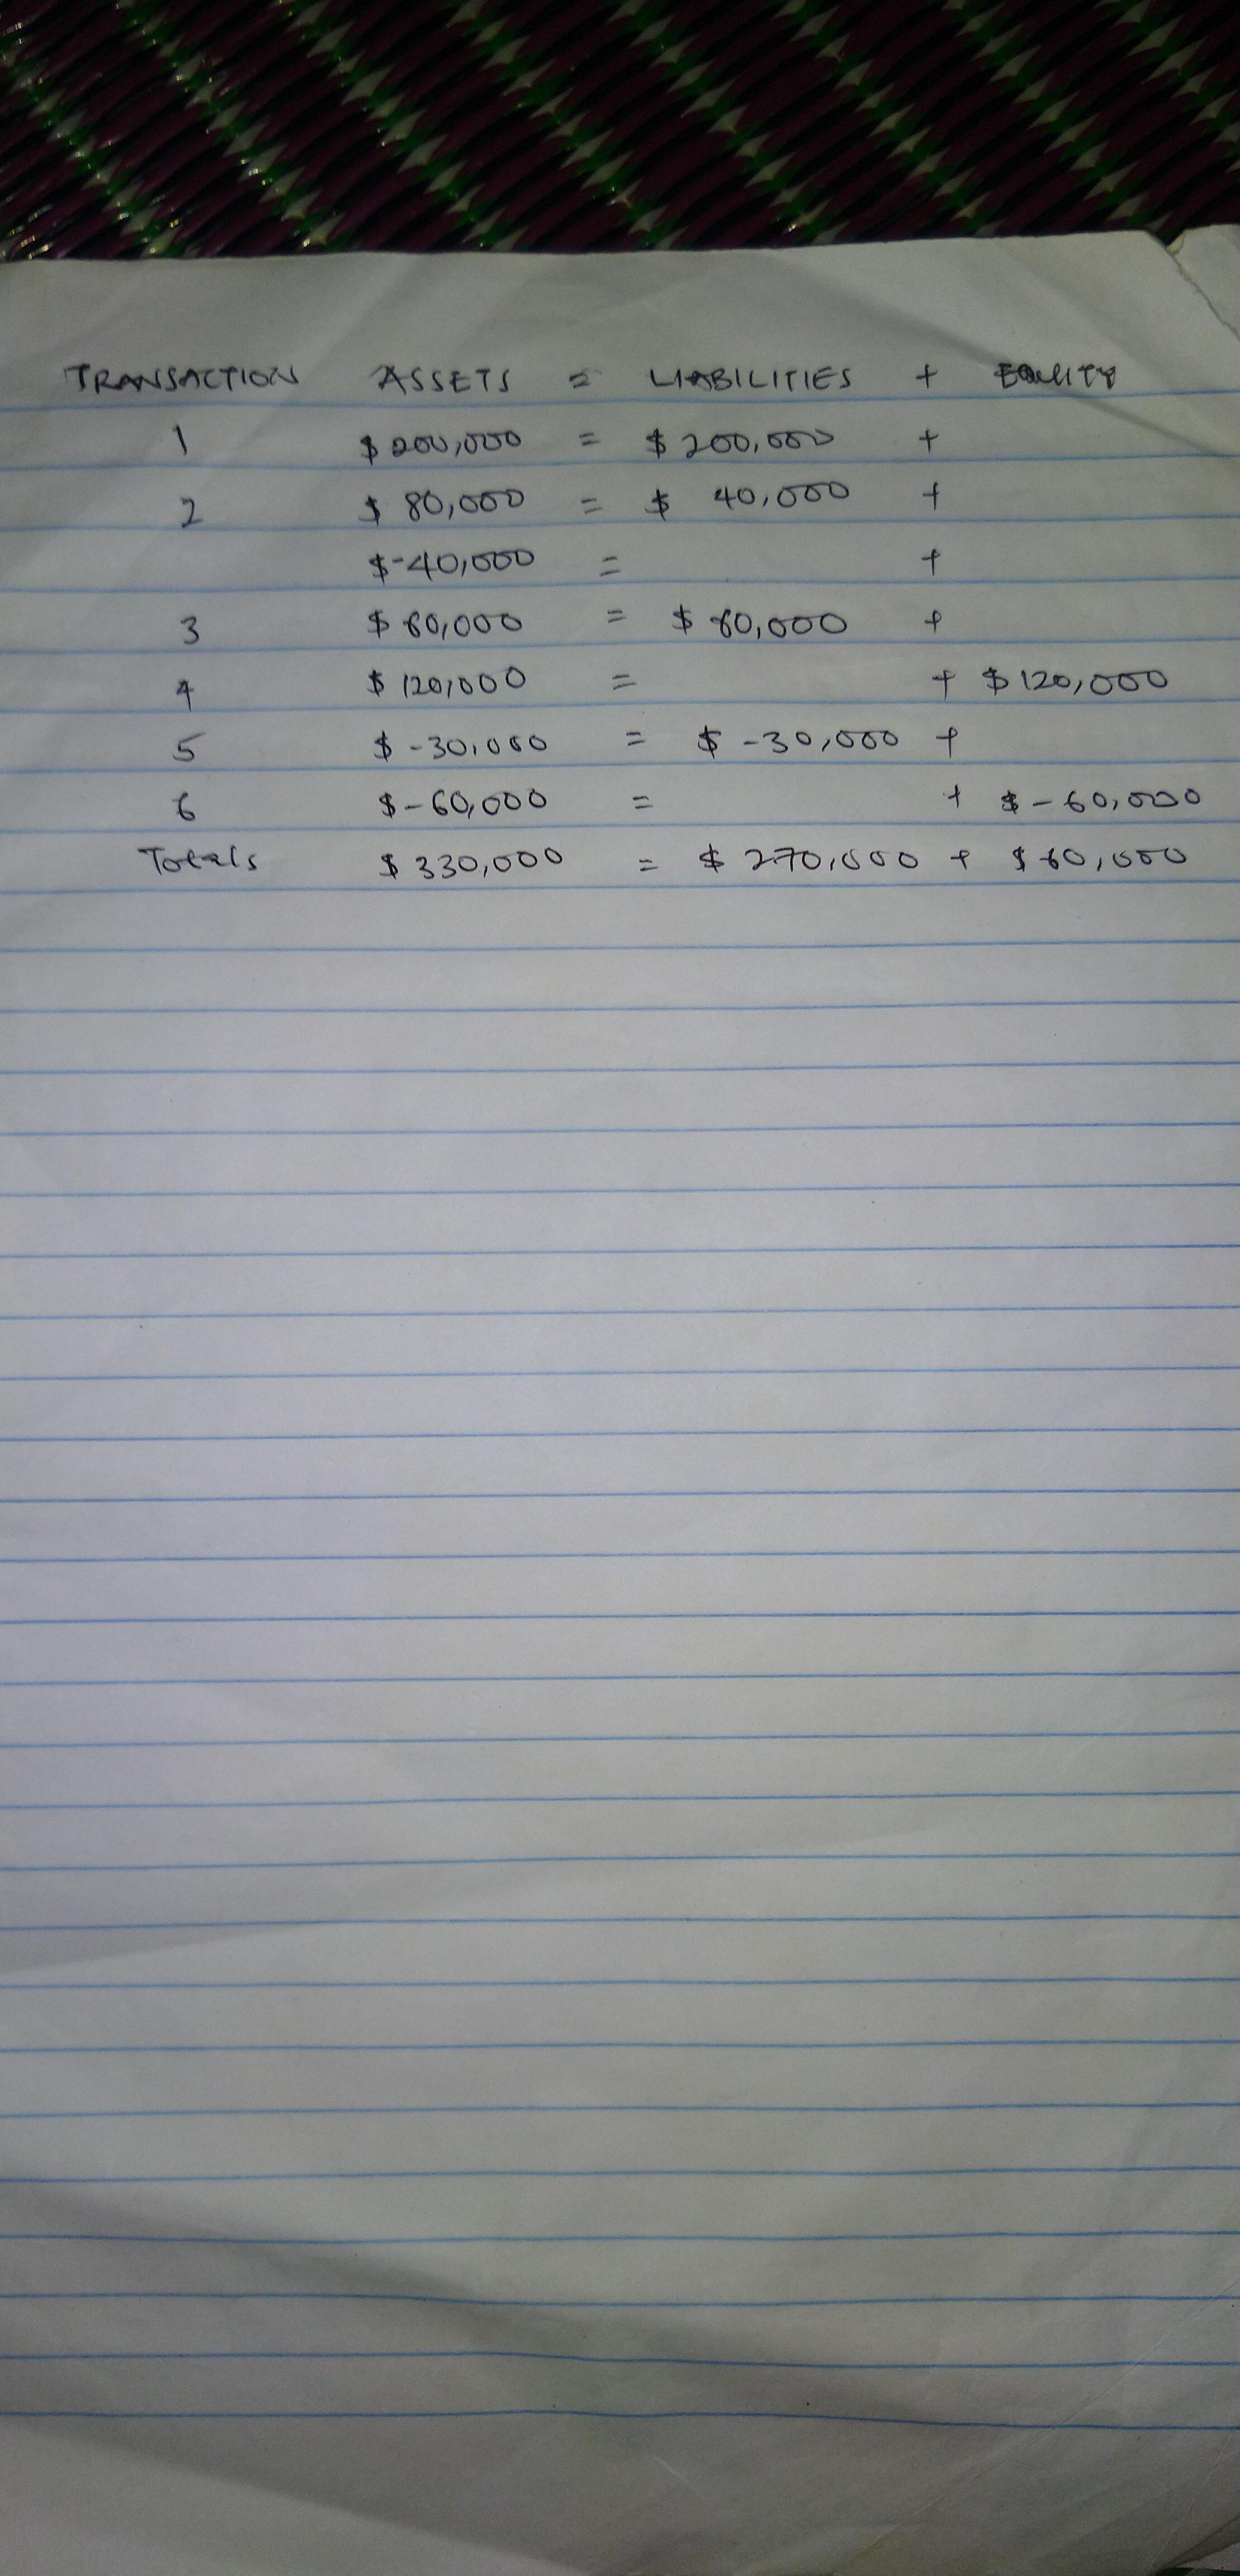 TRANSACTION ASSETS = LIABILITIES + EQUITY
1 $200,000 = $200,000 +
2 $ 80,000 = $ 40,000 +
$-40,000 = +
3 $ 60,000 = $ 60,000 +
4 $ 120,000 = + $120,000
5 $ -30,000 = $ -30,000 +
6 $-60,000 = + $-60,000
Totals $ 330,000 = $ 270,000 + $60,000